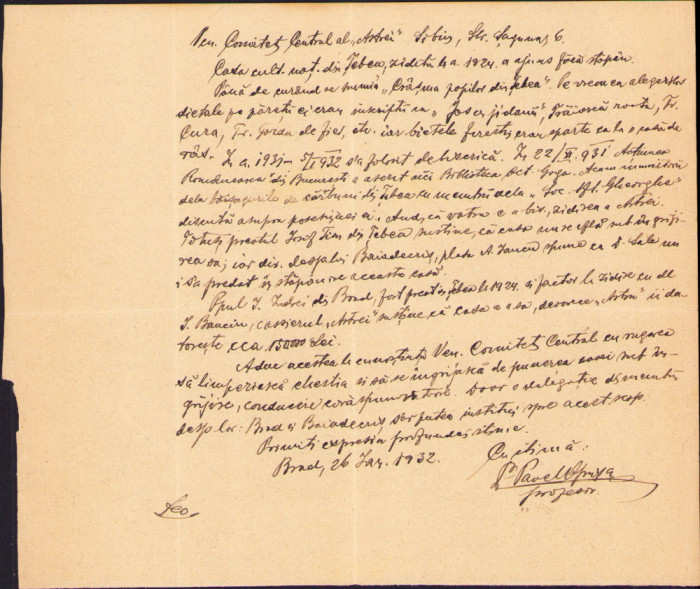 Ven. Comitet Central al „Astrei” Sibiu, Str. Șaguna 6.
Casa cult. naț. din Țebea, zidită la a. 1924 a ajuns fără stăpân.
Până de curând se numia „Crâșma popilor din Țebea”. Pe vremea alegerilor
dietale pe păreții ei erau inscripții ca „Jos cu jidanii”, Trăiască
Cura, Tr. Garda de fier, etc. iar bietele ferești erau sparte ca la o casă de
râs. In a. 1931 - 5/I 932 s'a folosit de biserică. In 22/ 931 Acțiunea
Românească din București a așezat aici Biblioteca Oct. Goga. Acum muncitorii
dela băișagurile de cărbuni din Țebea cu membrii dela „Soc. Sf. Gheorghe”
discută asupra posesiunei ei. Aud, că vatra e a bis. zidirea a Astrei.
Totuș preotul Iosif din Țebea susține, că casa nu se află sub îngriji-
rea sa; iar dir. despăr. Baiadecriș, plasa A. Iancu spune că D. Sale nu
i s'a predat în stăpânire această casă.
Ppul I. Indrei din Brad, fost preot în Țebea la 1924 și factor la zidire cu dl
I. Banciu, cassierul „Astrei” susține că casa e a sa, deoarece „Astra” îi da-
torește cca 15000 Lei.
Aduc acestea la cunoștința Ven. Comitet Central cu rugarea
să limpezească chestia și să se îngrijască de punerea casei sub în-
grijire, conducere corăspunzătoare. Doar o delegație din membrii
desp. loc. Brad și Baiadecriș s'ar putea institui spre acest scop.
Primiți expresia profundei stime.
Brad, 26 Ian. 1932.
Cu stimă:
Pr. Pavel Oprișa
profesor.